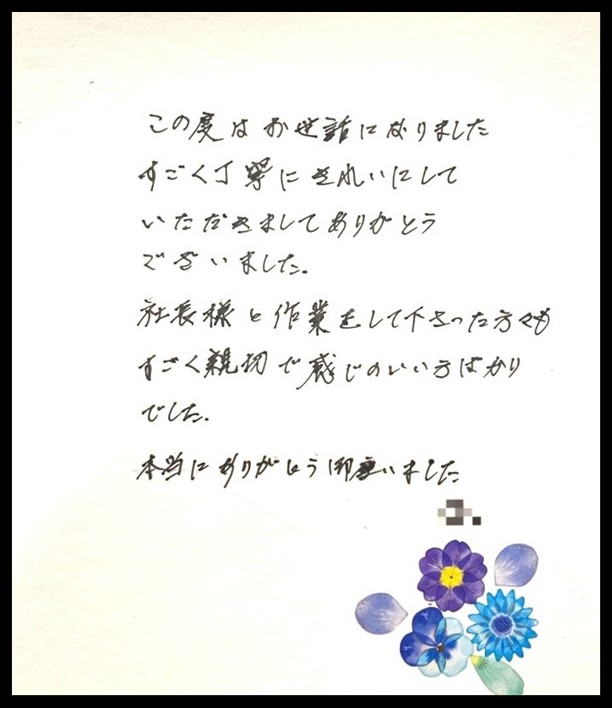 この度はお世話になりました
すごく丁寧にきれいにして
いただきましてありがとう
ございました。
社長様と作業をして下さった方々も
すごく親切で感じのいい方ばかり
でした。
本当にありがとう御座いました